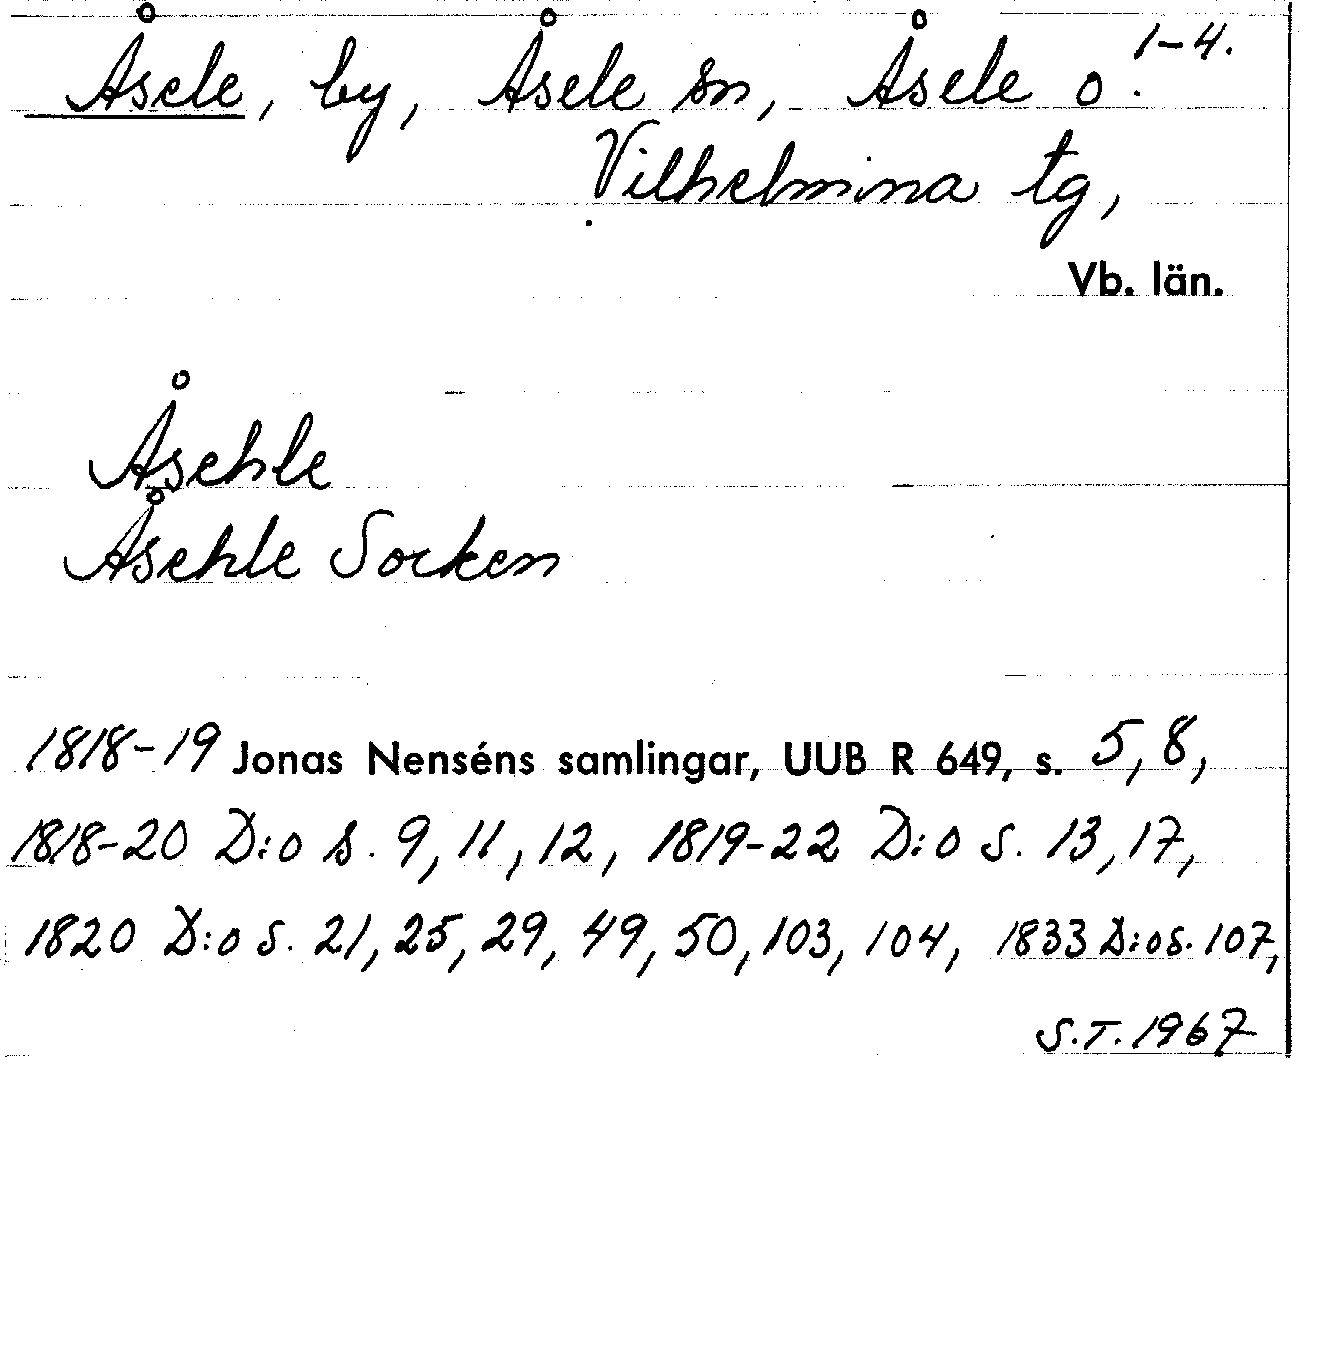 1-4.
Åsele, by, Åsele sn, Åsele o.
Vilhelmina tg,
Vb. län.
Åsehle
Åsehle Socken
1818-19 Jonas Nenséns samlingar, UUB R 649, s. 5, 8,
1818-20 D:o s. 9, 11, 12, 1819-22 D:o s. 13, 17,
1820 D:o s. 21, 25, 29, 49, 50, 103, 104, 1833 D:o s. 107,
S.T. 1967